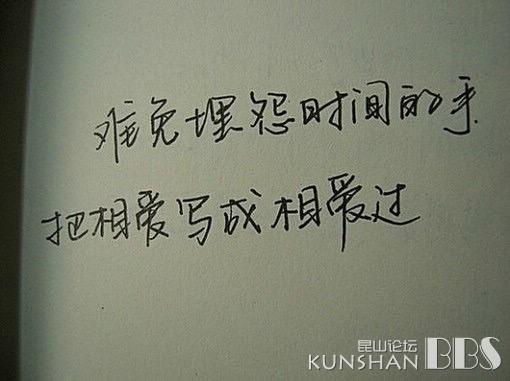 难免埋怨时间的手
把相爱写成相爱过
昆山论坛
KUNSHAN BBS